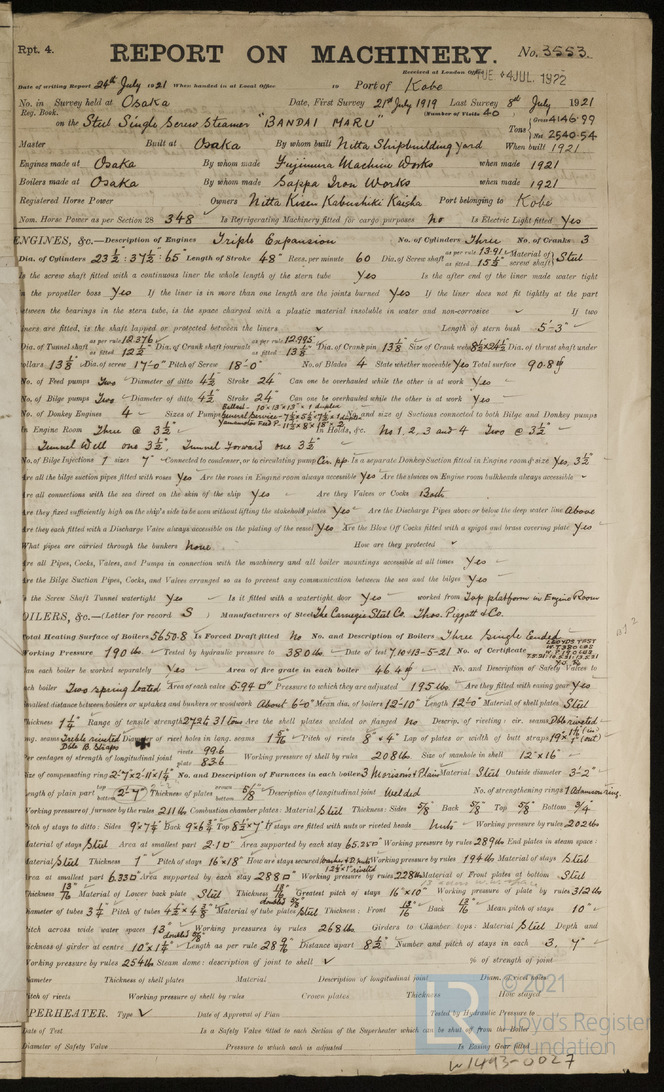 Rpt. 4.
REPORT ON MACHINERY. No. 3553.
Received at London Office TUE 4 JUL. 1922
Date of writing Report 24th July 1921 When handed in at Local Office to Port of Kobe
No. in Survey held at Osaka Date, First Survey 21st July 1919 Last Survey 8th July 1921
Reg. Book. (Number of Visits 40)
on the Steel Single Screw Steamer "BANDAI MARU" Tons Gross 4146.99 Net 2540.54
Master Built at Osaka By whom built Nitta Shipbuilding Yard When built 1921
Engines made at Osaka By whom made Fujimura Machine Works when made 1921
Boilers made at Osaka By whom made Sappa Iron Works when made 1921
Registered Horse Power Owners Nitta Kisen Kabushiki Kaisha Port belonging to Kobe
Nom. Horse Power as per Section 28 348 Is Refrigerating Machinery fitted for cargo purposes No Is Electric Light fitted Yes
ENGINES, &c.—Description of Engines Triple Expansion No. of Cylinders Three No. of Cranks 3
Dia. of Cylinders 23½" : 37½" : 65" Length of Stroke 48" Revs. per minute 60 Dia. of Screw shaft as per rule 13.91 as fitted 15½" Material of screw shaft Steel
Is the screw shaft fitted with a continuous liner the whole length of the stern tube Yes Is the after end of the liner made water tight
in the propeller boss Yes If the liner is in more than one length are the joints burned Yes If the liner does not fit tightly at the part
between the bearings in the stern tube, is the space charged with a plastic material insoluble in water and non-corrosive ✓ If two
liners are fitted, is the shaft lapped or protected between the liners ✓ Length of stern bush 5'-3"
Dia. of Tunnel shaft as per rule 12.376 as fitted 12½" Dia. of Crank shaft journals as per rule 12.995 as fitted 13⅛" Dia. of Crank pin 13⅛ Size of Crank webs 8½"x24½ Dia. of thrust shaft under
collars 13⅛ Dia. of screw 17'-0" Pitch of Screw 18'-0" No. of Blades 4 State whether moveable Yes Total surface 90.8
No. of Feed pumps Two Diameter of ditto 4½ Stroke 24" Can one be overhauled while the other is at work Yes
No. of Bilge pumps Two Diameter of ditto 4½ Stroke 24" Can one be overhauled while the other is at work Yes
No. of Donkey Engines 4 Sizes of Pumps and size of Suctions connected to both Bilge and Donkey pumps
In Engine Room Three @ 3½ In Holds, &c. No 1, 2, 3 and 4 Two @ 3½"
Tunnel Well one 3½, Tunnel Forward one 3½
No. of Bilge Injections 1 sizes 7" Connected to condenser, or to circulating pump Cir. pp. Is a separate Donkey Suction fitted in Engine room & size Yes, 3½
Are all the bilge suction pipes fitted with roses Yes Are the roses in Engine room always accessible Yes Are the sluices on Engine room bulkheads always accessible
Are all connections with the sea direct on the skin of the ship Yes Are they Valves or Cocks Both
Are they fixed sufficiently high on the ship's side to be seen without lifting the stokehold plates Yes Are the Discharge Pipes above or below the deep water line Above
Are they each fitted with a Discharge Valve always accessible on the plating of the vessel Yes Are the Blow Off Cocks fitted with a spigot and brass covering plate Yes
What pipes are carried through the bunkers None How are they protected ✓
Are all Pipes, Cocks, Valves, and Pumps in connection with the machinery and all boiler mountings accessible at all times Yes
Are the Bilge Suction Pipes, Cocks, and Valves arranged so as to prevent any communication between the sea and the bilges Yes
Is the Screw Shaft Tunnel watertight Yes Is it fitted with a watertight door Yes worked from Top platform in Engine Room
BOILERS, &c.—(Letter for record S) Manufacturers of Steel The Carnegie Steel Co. Thos. Piggott & Co.
Total Heating Surface of Boilers 5650.8 Is Forced Draft fitted No No. and Description of Boilers Three Single Ended
Working Pressure 190 lbs. Tested by hydraulic pressure to 380 lbs. Date of test 7.10 & 13-5-21 No. of Certificate
Can each boiler be worked separately Yes Area of fire grate in each boiler 46.4 No. and Description of Safety Valves to
each boiler Two spring loaded Area of each valve 5.94 □" Pressure to which they are adjusted 195 lbs. Are they fitted with easing gear Yes
Smallest distance between boilers or uptakes and bunkers or woodwork About 6'-0" Mean dia. of boilers 12'-10" Length 12'-0" Material of shell plates Steel
Thickness 1¼" Range of tensile strength 27½ & 31 tons Are the shell plates welded or flanged No Descrip. of riveting: cir. seams Dble riveted
long. seams Treble riveted Dble B. Straps Diameter of rivet holes in long. seams 1 5/16 Pitch of rivets 8" & 4" Lap of plates or width of butt straps
Per centages of strength of longitudinal joint rivets 99.6 plate 83.6 Working pressure of shell by rules 208 lbs. Size of manhole in shell 12"x16"
Size of compensating ring 2'-7"x2'-11"x1¼" No. and Description of Furnaces in each boiler 3 Morison's & Plain Material Steel Outside diameter 3'-2"
Length of plain part Thickness of plates Description of longitudinal joint Welded No. of strengthening rings
Working pressure of furnace by the rules 211 lbs Combustion chamber plates: Material Steel Thickness: Sides ⅝" Back ⅝" Top ⅝" Bottom ¾"
Pitch of stays to ditto: Sides 9"x7½" Back 9"x6¾" Top 8½"x7" If stays are fitted with nuts or riveted heads Nuts Working pressure by rules 202 lbs
Material of stays Steel Area at smallest part 2.10" Area supported by each stay 65.25□" Working pressure by rules 289 lbs End plates in steam space:
Material Steel Thickness 1" Pitch of stays 16"x18" How are stays secured Working pressure by rules 194 lbs Material of stays Steel
Area at smallest part 6.33□" Area supported by each stay 288□" Working pressure by rules 228 lbs Material of Front plates at bottom Steel
Thickness 13/16" Material of Lower back plate Steel Thickness 13/16" Greatest pitch of stays 16"x10" Working pressure of plate by rules 312 lbs
Diameter of tubes 3¼ Pitch of tubes 4½"x4⅜" Material of tube plates Steel Thickness: Front 13/16 Back 13/16 Mean pitch of stays 10"
Pitch across wide water spaces 13" Working pressures by rules 268 lbs. Girders to Chamber tops: Material Steel Depth and
thickness of girder at centre 10"x1¼" Length as per rule 28 9/16 Distance apart 8½" Number and pitch of stays in each 3, 7"
Working pressure by rules 254 lbs Steam dome: description of joint to shell ✓ % of strength of joint
Diameter Thickness of shell plates Material Description of longitudinal joint Diam. of rivet holes
Pitch of rivets Working pressure of shell by rules Crown plates Thickness How stayed
SUPERHEATER. Type ✓ Date of Approval of Plan Tested by Hydraulic Pressure to
Date of Test Is a Safety Valve fitted to each Section of the Superheater which can be shut off from the Boiler
Diameter of Safety Valve Pressure to which each is adjusted Is Easing Gear fitted
© 2021
Lloyd's Register
Foundation
W1493-0027